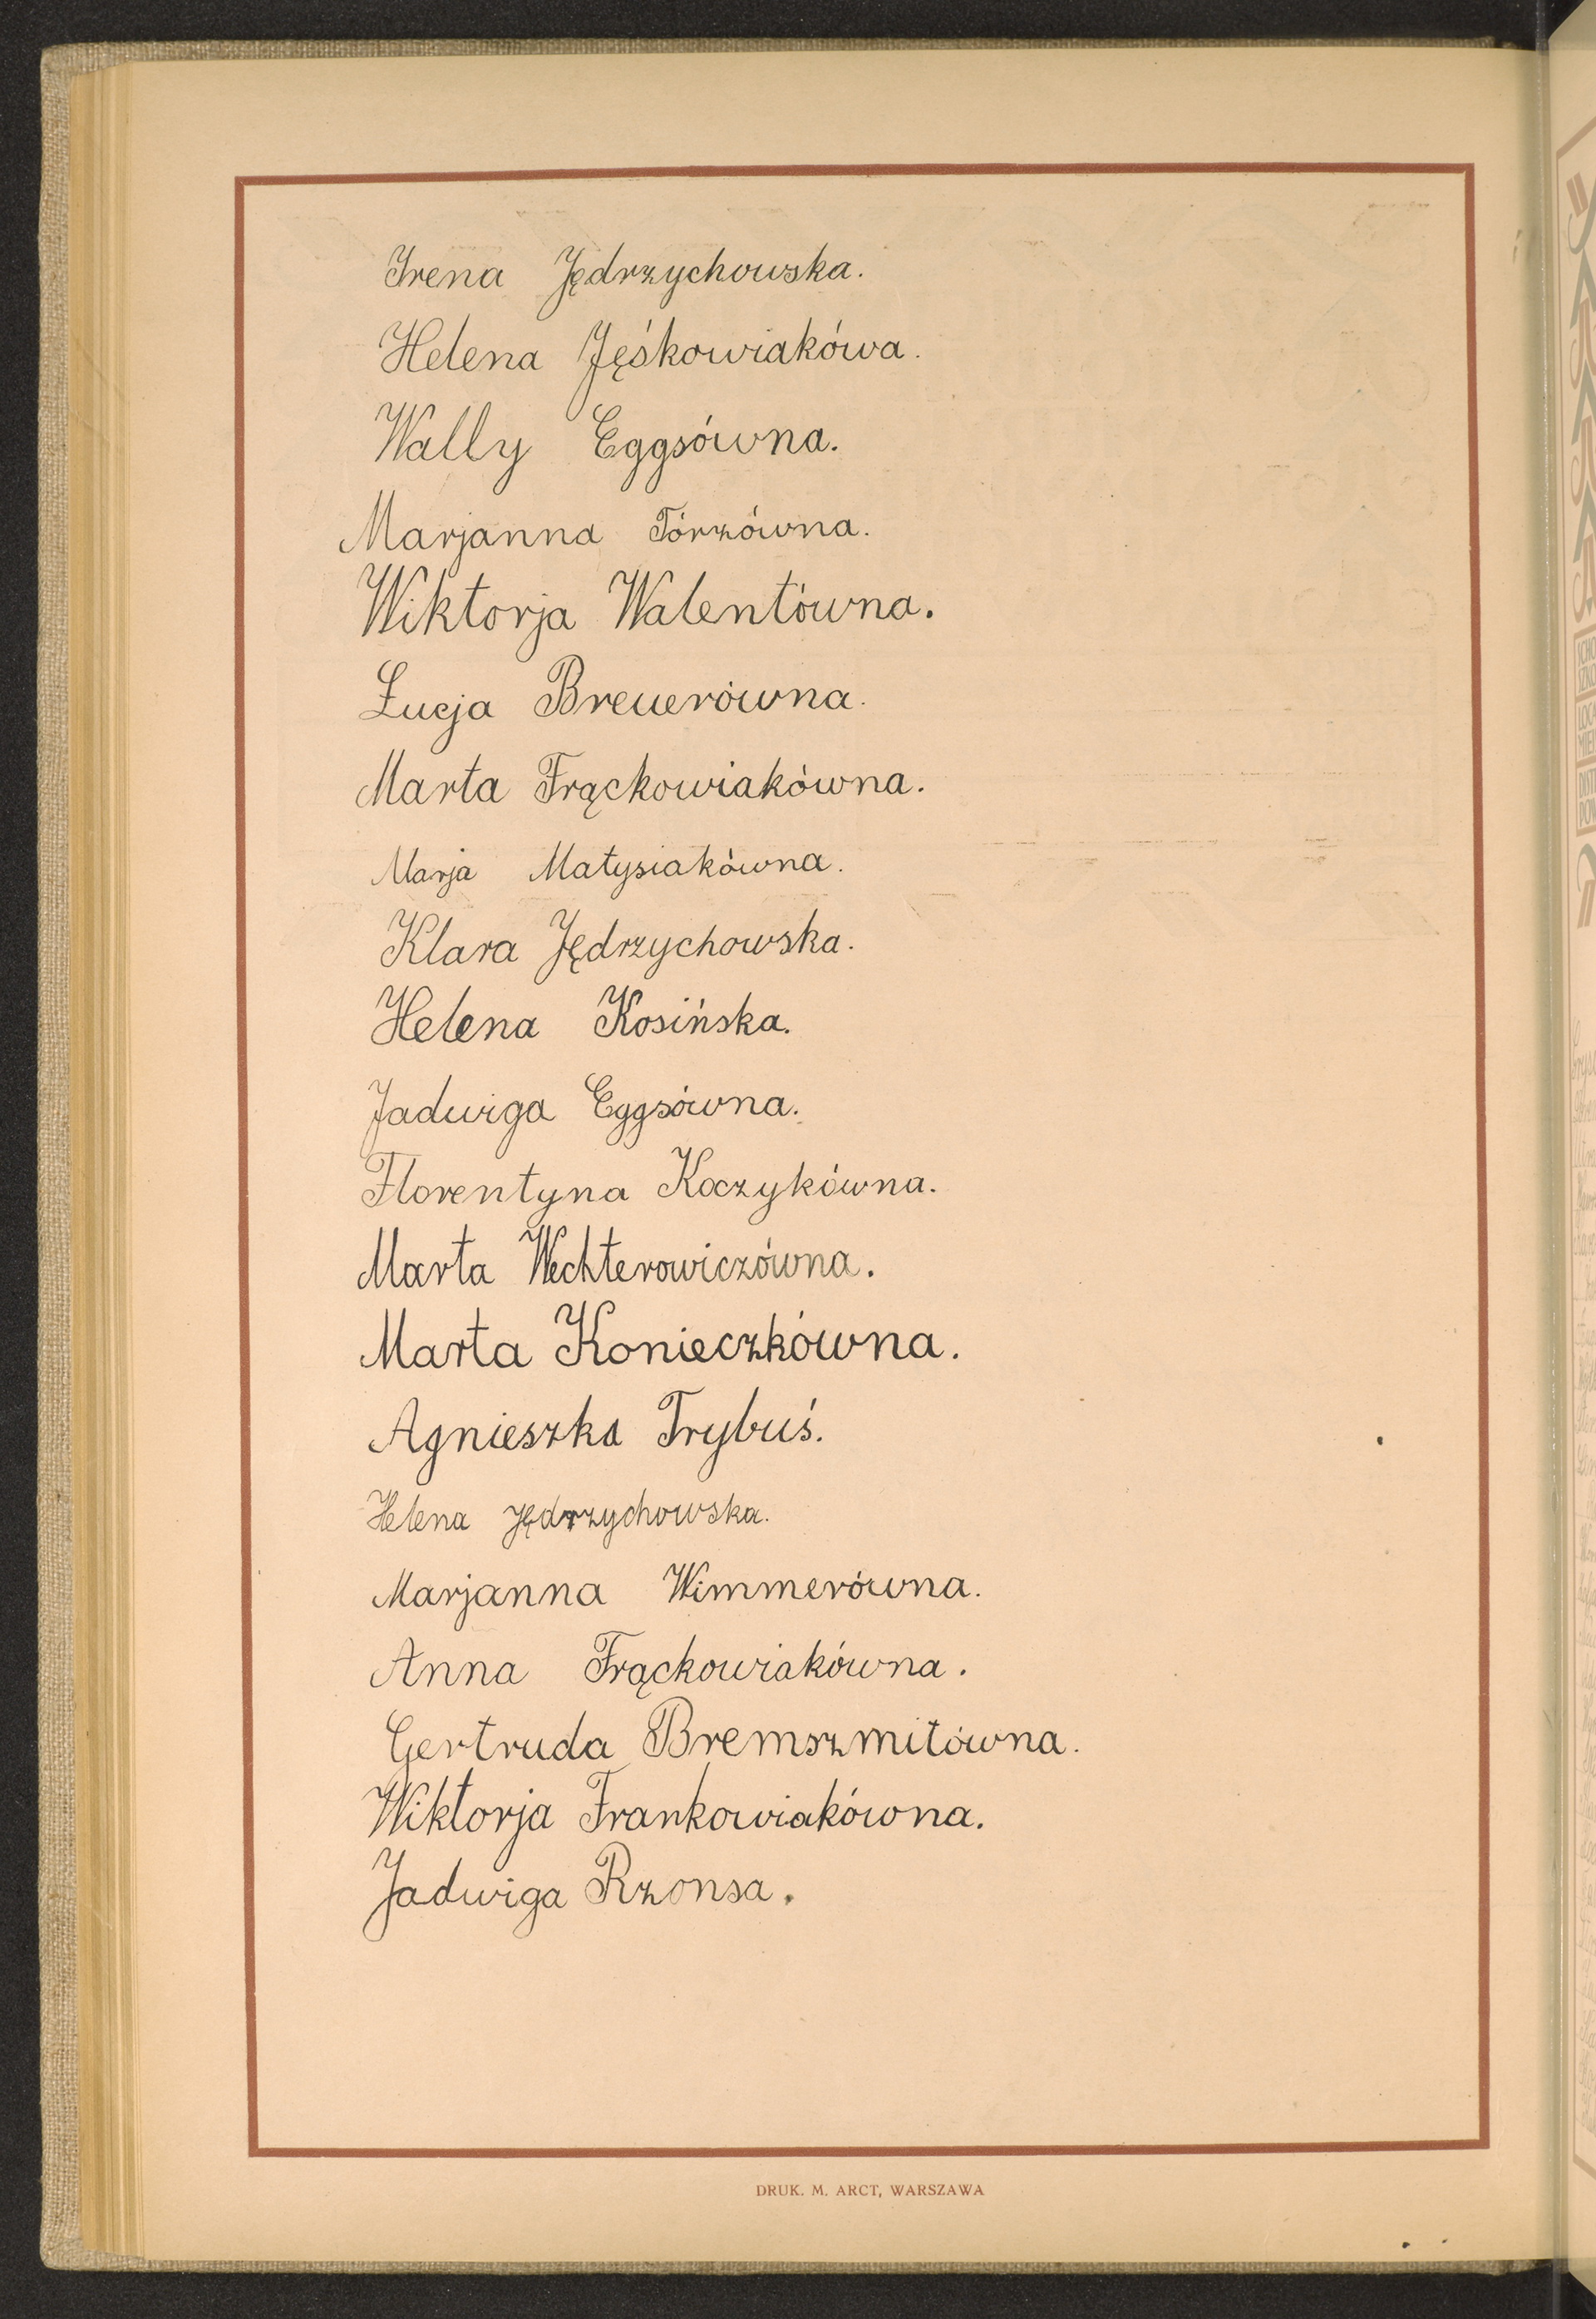 Irena Jędrzychowska.
Helena Jęśkowiakówa.
Wally Eggsówna.
Marjanna Tórzówna.
Wiktorja Walentówna.
Łucja Breuerówna.
Marta Frąckowiakówna.
Marja Matysiakówna.
Klara Jędrzychowska.
Helena Kosińska.
Jadwiga Eggsówna.
Florentyna Koczykówna.
Marta Wechterowiczówna.
Marta Konieczkówna.
Agnieszka Trybuś.
Helena Jędrzychowska.
Marjanna Wimmerówna.
Anna Frąckowiakówna.
Gertruda Bremszmitówna.
Wiktorja Frankowiakówna.
Jadwiga Rzonsa.
DRUK. M. ARCT, WARSZAWA